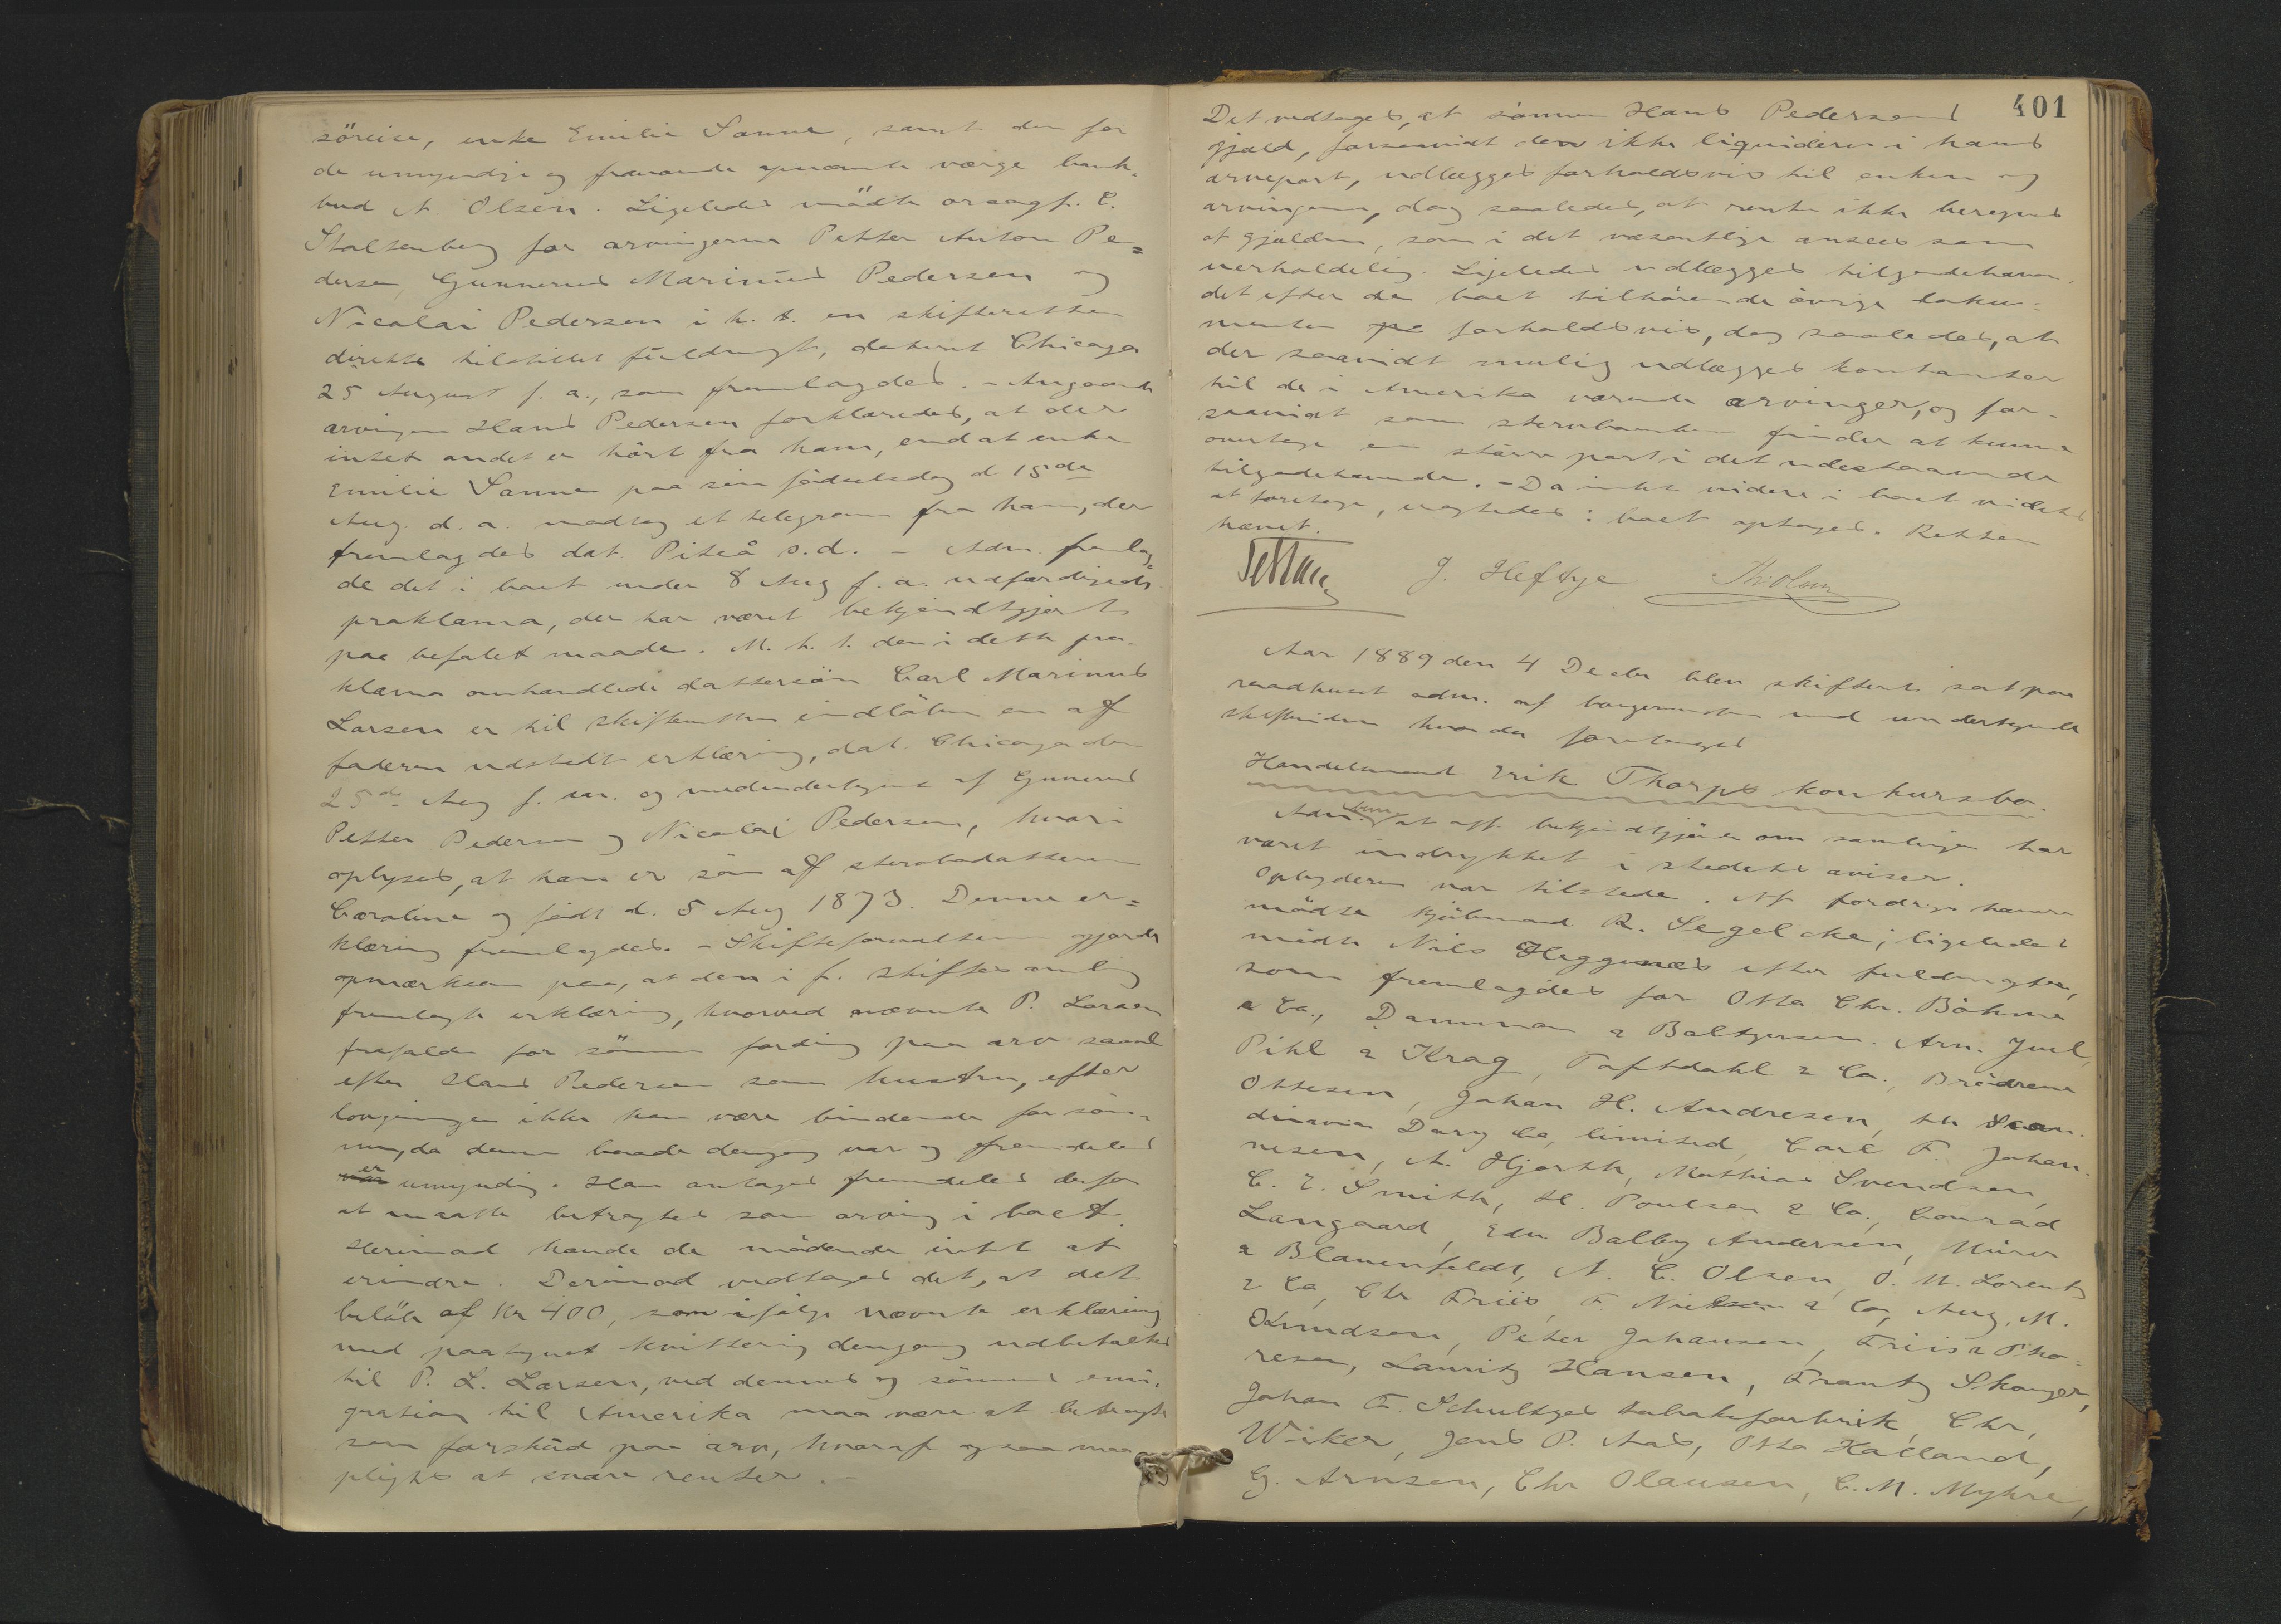 söreise, enke Emilie Sanne, samt den for
de umyndige og fraværende opnævnte værge bank-
bud A. Olsen. Ligeledes mödte orsagf. C.
Stoltenberg for arvingerne Petter Anton Pe=
dersen, Gunnerius Marinius Pedersen og
Nicolai Pedersen i h. t. en skifteretten
direkte tilstillet fuldmagt, dateret Chicago
25 August f. a., som fremlagdes. - Angaaende
arvingen Hans Pedersen forklaredes, at der
intet andet er hört fra ham, end at enke
Emilie Sanne paa sin födselsdag d 15de
Aug. d. a. modtog et telegram fra ham, der
fremlagdes dat. Piteå s.d. - Adm. fremlag=
de det i boet under 8 Aug f. a. udfærdigede
proklama, der har været bekjendtgjort
paa befalet maade. M. h. t. den i dette pro-
klama omhandlede dattersön Carl Marinus
Larsen er til skifteretten indlöben en af
faderen udstedt erklæring, dat. Chicago den
25de Aug f. aar. og medundertegnet af Gunnerius
Petter Pedersen og Nicolai Pedersen, hvori
oplyses, at han er sön af sterbodatteren
Caroline og födt d. 5 Aug 1873. Denne er=
klæring fremlagdes. - Skifteforvalteren gjorde
opmærksom paa, at den i f. skiftesamling
fremlagte erklæring, hvorved nævnte P. Larsen
frafalder for sönnen fordring paa arv saavel
efter Hans Pedersen som hustru, efter
lovgivningen ikke kan være bindende for sön-
nen, da denne baade dengang var og fremdeles
er umyndig. Han antages fremdeles derfor
at maatte betragtes som arving i boet.
Herimod havde de mödende intet at
erindre. Derimod vedtages det, at det
belöb af Kr 400, som ifölge nævnte erklæring
med paategnet kvittering dengang udbetaltes
til P. L. Larsen, ved dennes og sönnens emi-
gration til Amerika maa være at betragte
som forskud paa arv, hvoraf ogsaa maa
pligtes at svare renter. -
401
Det vedtages, at sönnen Hans Pedersens
gjæld, forsaavidt den ikke liquideres i hans
arvepart, udlægges forholdsvis til enken og
arvingerne, dog saaledes, at rente ikke beregnes
af gjælden, som i det væsentlige ansees som
uerholdelig. Ligeledes udlægges tilgodehaven-
det efter de boet tilhörende övrige doku-
menter forholdsvis, dog saaledes, at
der saavidt mulig udlægges kontanter
til de i Amerika værende arvinger, og for-
saavidt som sterbenken finder at kunne
overtage en större part i det udestaaende
tilgodehavende. - Da intet videre i boet vidstes
at foretage, vedtoges: boet optages. Retten
hævet.
J. Heftye Th. Olsen
Aar 1889 den 4 Decbr blev skifteret sat paa
raadhuset adm. af borgermesteren med undertegnede
skiftevidner hvorda foretoges
Handelsmand Erik Thorps konkursbo.
Adm. at aff. bekjendtgjörelse om samlingen har
været indrykket i stedets aviser.
Opbyderen var tilstede. Af fordringshavere
mödte kjöbmand R. Segelcke; ligeledes
mödte Nils Heggenæs efter fuldmagter,
som fremlagdes for Otto Chr. Böhme
& Co., Damman & Baltzersen. Arn. Juel,
Pihl & Krag, Toftdahl & Co., Brödrene
Ottesen, Johan H. Andresen, the Scan-
dinavia Dary Co, limited, Carl F. Johan-
nesen, A. Hjorth, Mathias Svendsen,
C. E. Smith, H. Poulsen & Co., Conrad
Langaard, Edv Balby Andersen,
& Blauenfeldt, A. C. Olsen, O. M. Lorentz
& Co, Chr Friis, F. Nielsen & Co, Aug. M.
Knudsen, Peter Johansen, Friis & Tho=
resen, Lauritz Hansen, Frantz Skouger,
Johan F. Schultzes tobaksfabrik, Chr,
Wiker, Jens P. Aas, Otto Halland,
G. Arnsen, Chr Olausen, C. M. Myhre,